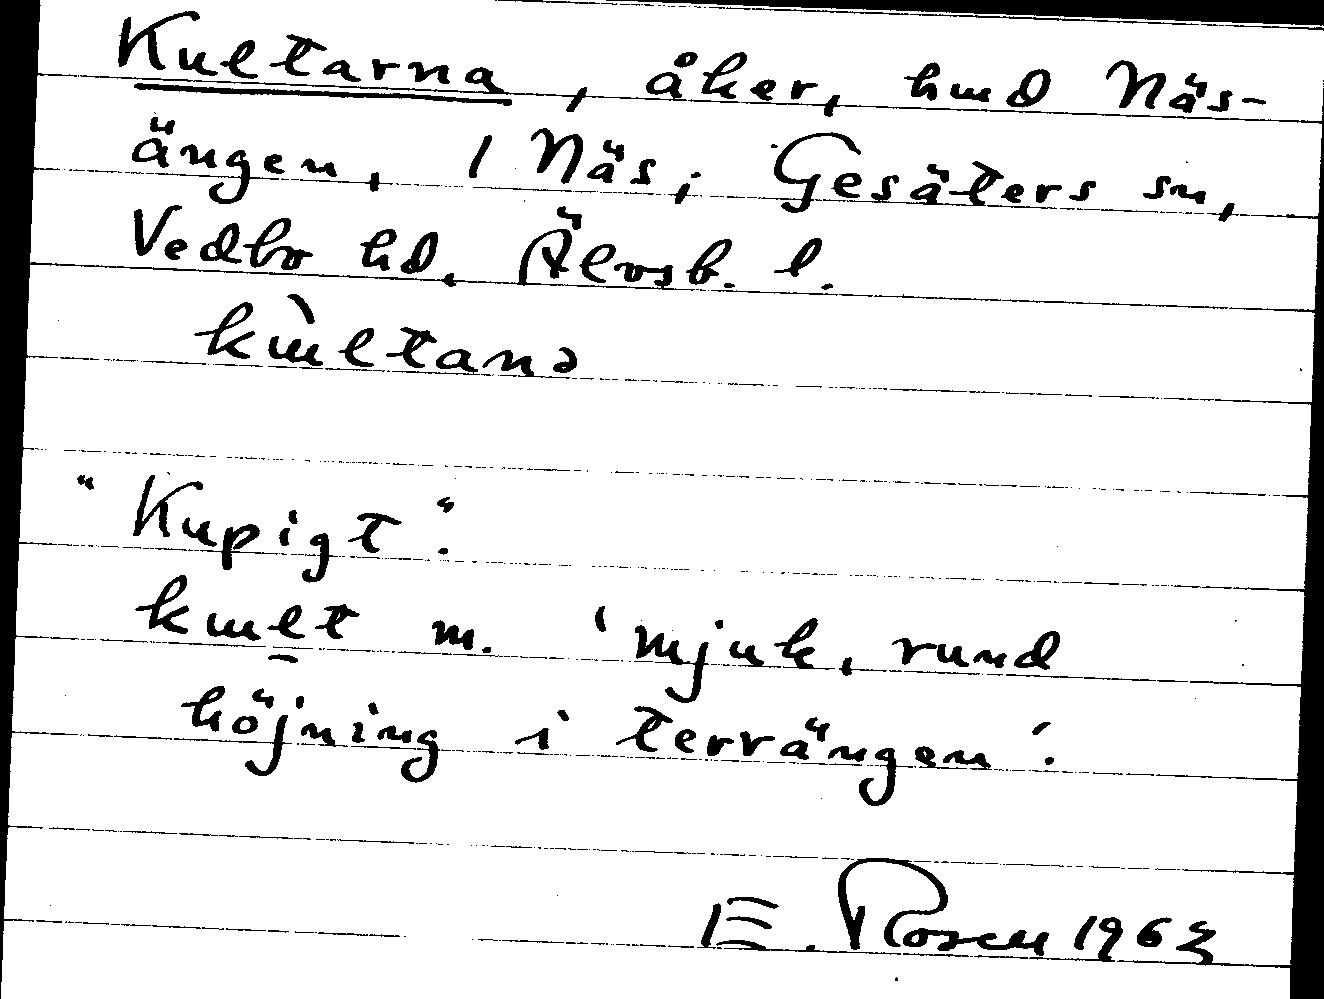 Kultarna, åker, hmd Näs-
ängen, 1 Näs, Gesäters sn,
Vedbo hd. Älvsb. l.
kɯ̀ltanə
"Kupigt".
kɯl̠t m. 'mjuk, rund
höjning i terrängen'.
E. Rosen 1963